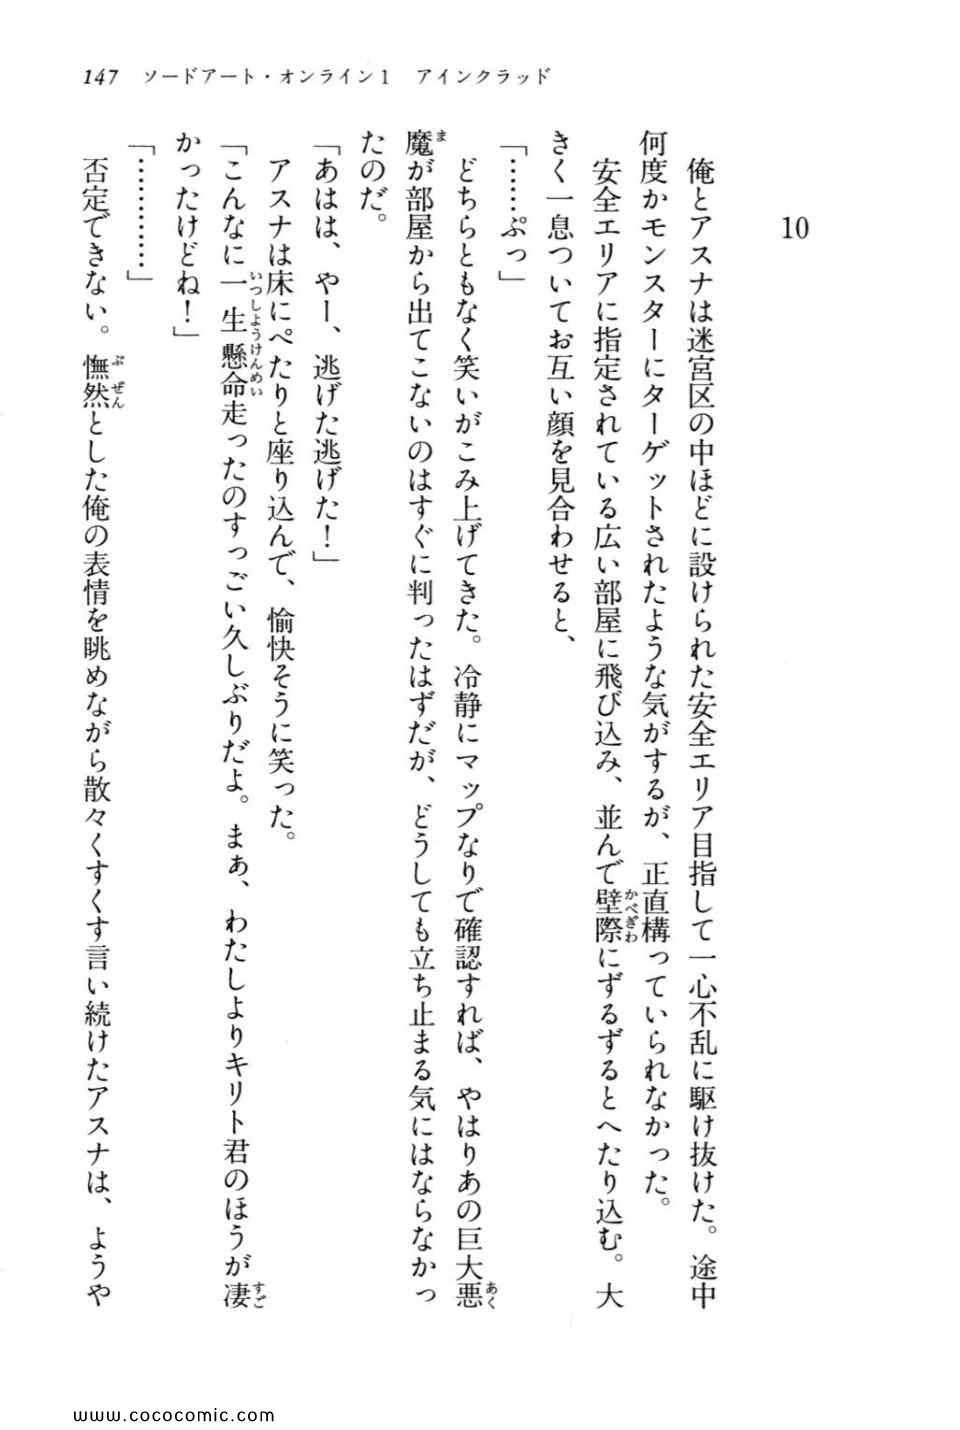 147 ソードアート・オンライン1　アインクラッド
10
　俺とアスナは迷宮区の中ほどに設けられた安全エリア目指して一心不乱に駆け抜けた。途中
何度かモンスターにターゲットされたような気がするが、正直構っていられなかった。
　安全エリアに指定されている広い部屋に飛び込み、並んで壁際にずるずるとへたり込む。大
きく一息ついてお互い顔を見合わせると、
「……ぷっ」
　どちらともなく笑いがこみ上げてきた。冷静にマップなりで確認すれば、やはりあの巨大悪
魔が部屋から出てこないのはすぐに判ったはずだが、どうしても立ち止まる気にはならなかっ
たのだ。
「あはは、やー、逃げた逃げた！」
　アスナは床にぺたりと座り込んで、愉快そうに笑った。
「こんなに一生懸命走ったのすっごい久しぶりだよ。まぁ、わたしよりキリト君のほうが凄
かったけどね！」
「…………」
　否定できない。憮然とした俺の表情を眺めながら散々くすくす言い続けたアスナは、ようや
www.cococomic.com